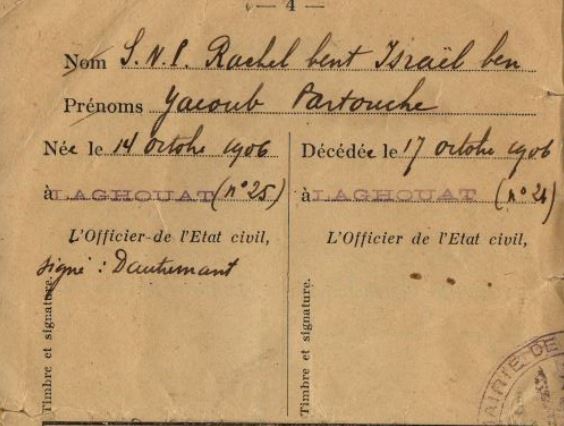 — 4 —
Nom S.N.P. Rachel bent Israël ben
Prénoms Yacoub Partouche
Née le 14 octobre 1906
à LAGHOUAT (n° 25)
L'Officier de l'Etat civil,
signé : Dautremant
Timbre et signature.
Décédée le 17 octobre 1906
à LAGHOUAT (n° 24)
L'Officier de l'Etat civil,
Timbre et signature.
MAIRIE DE